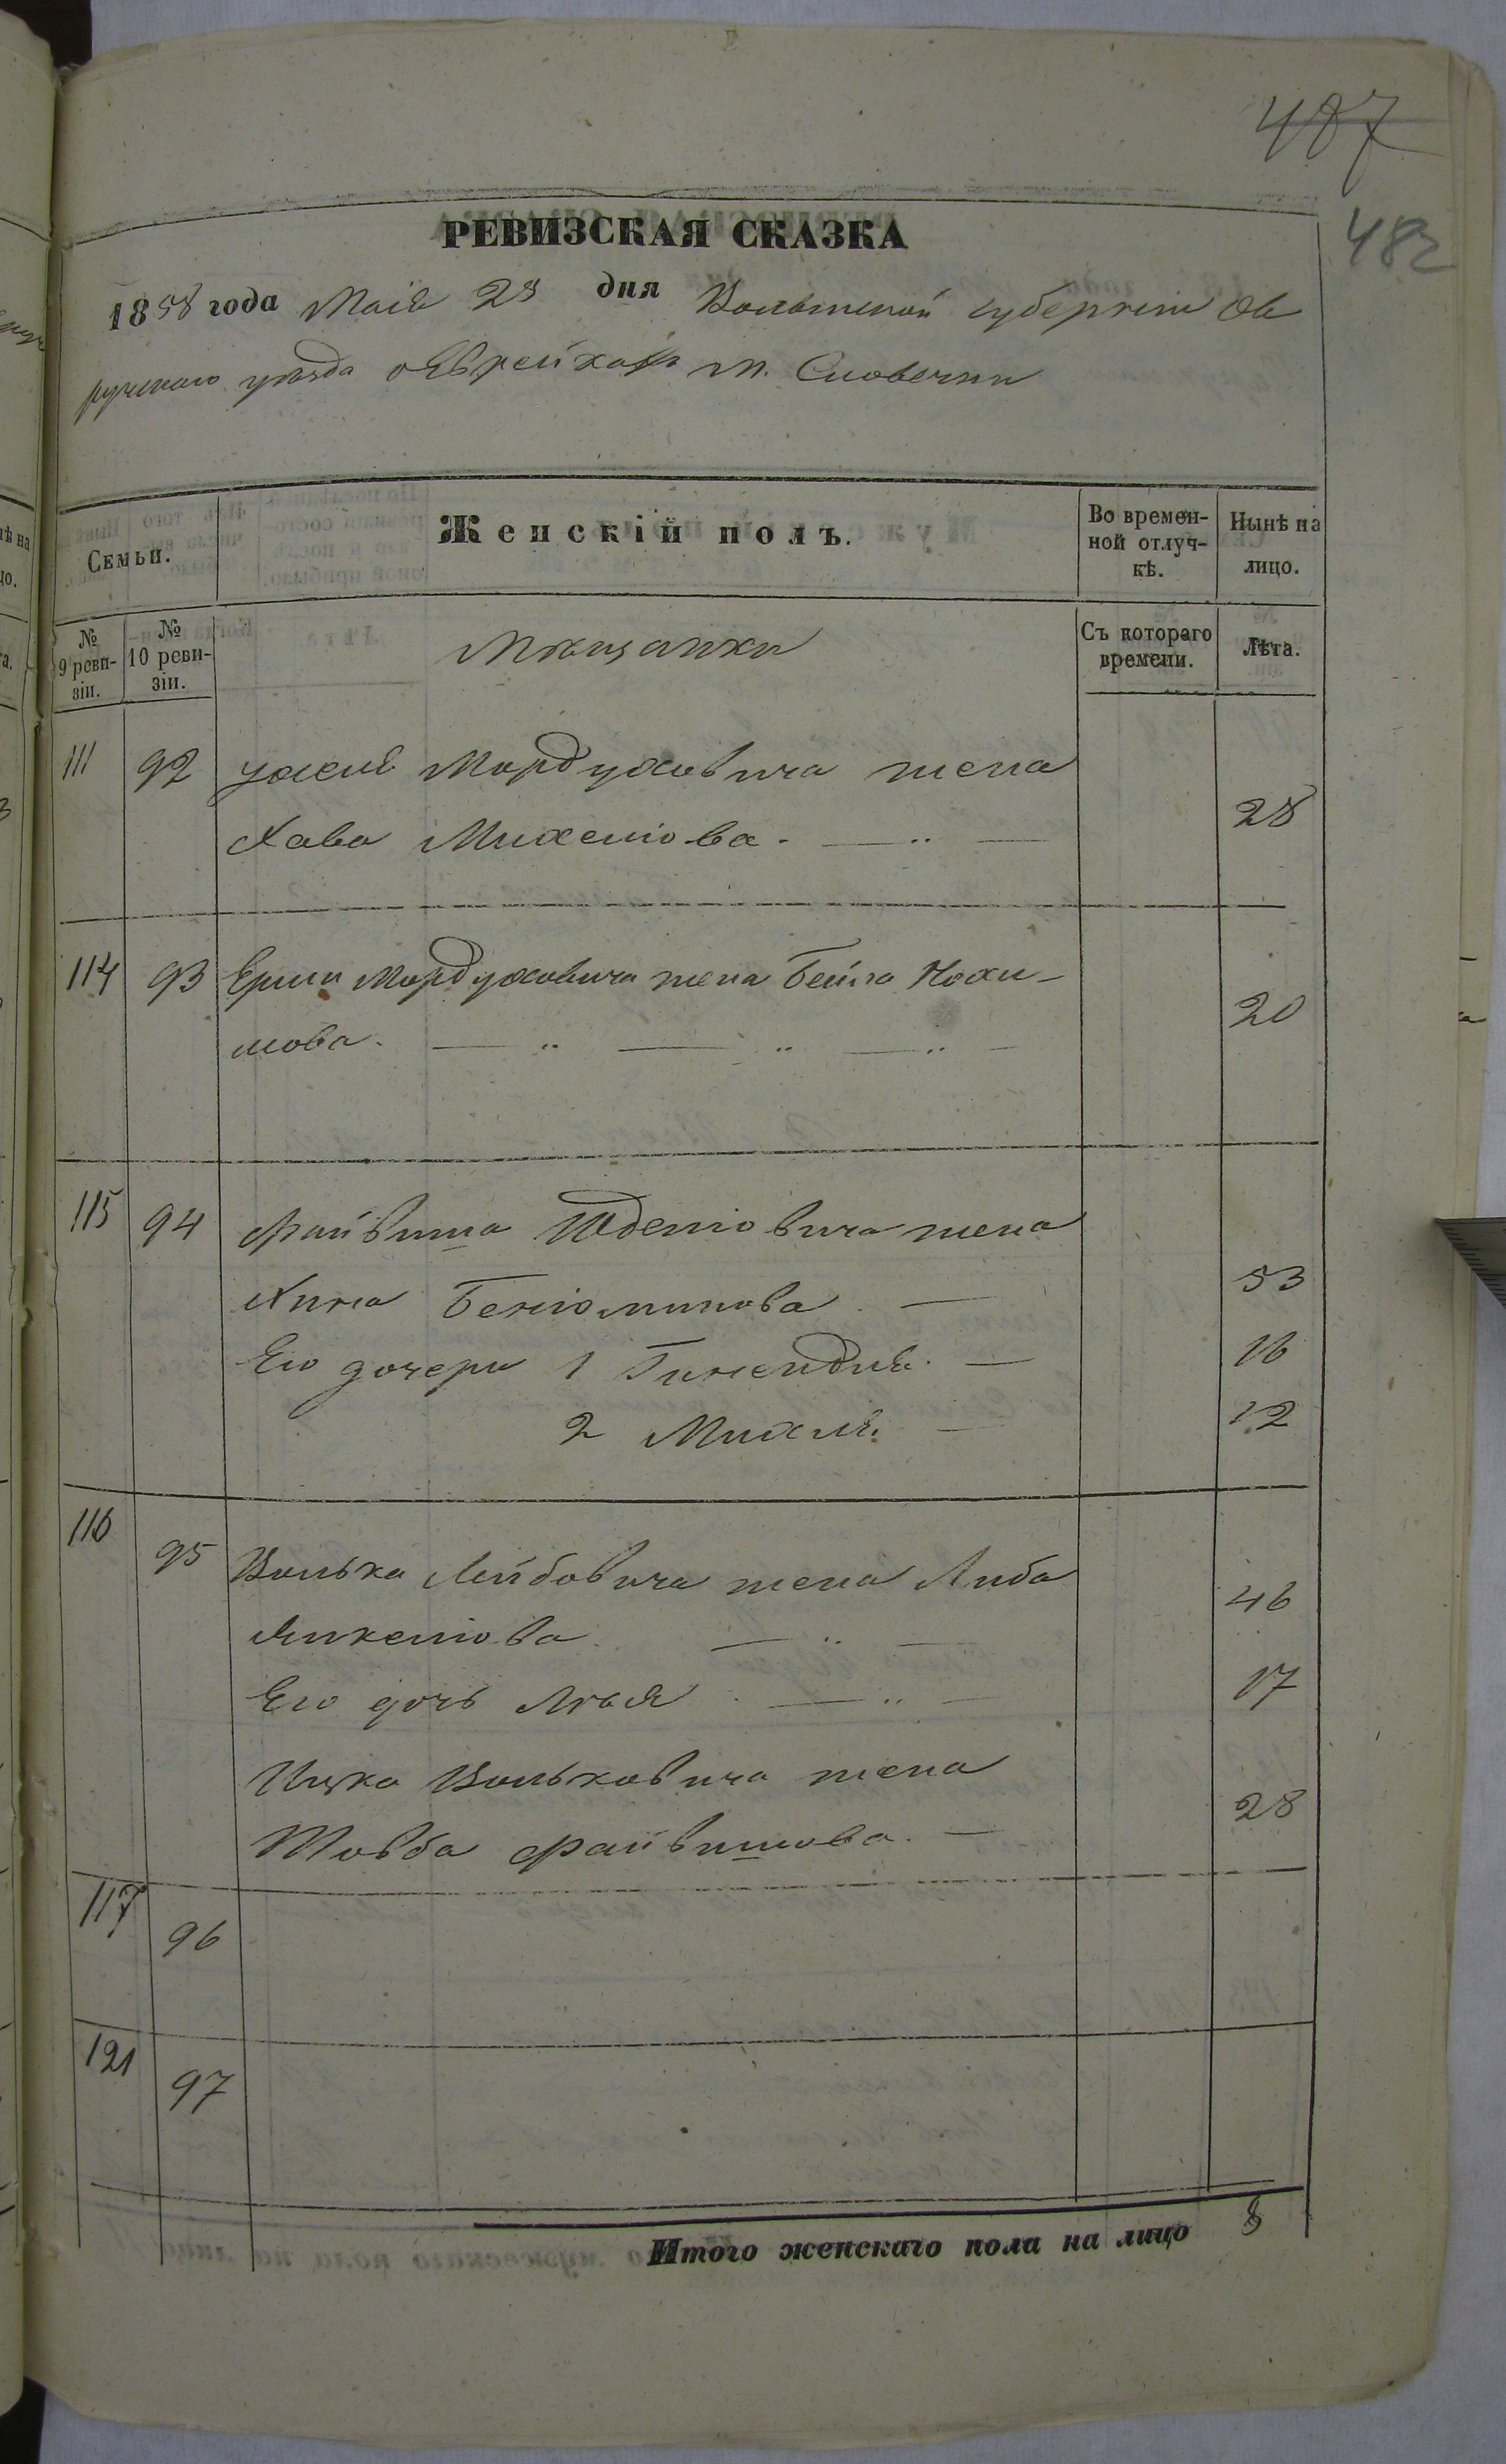 487
482
РЕВИЗСКАЯ СКАЗКА
1858 года Маія 23 дня Волынской губерніи Ов
ручскаго уѣзда о Еврейкахъ м. Словечни
Семьи.
Женскій полъ.
Во времен-
ной отлуч-
кѣ.
Нынѣ на
лицо.
№
9 реви-
зіи.
№
10 реви-
зіи.
Мѣщанки
Съ котораго
времени.
Лѣта.
111 92 Мордуховича жена
Хава Михелiова. 28
114 93 Ерша Мордуховича жена Бейла Нохи-
мова. 20
115 94 Файвиша Юделіовича жена
Хина Беніоминова. 53
Его дочери 1 16
2 Михля. 12
116 95 Волька Лейбовича жена Либа 46
Янкеліова.
Его дочь Лѣя 17
Ицка Вольковича жена
Товба Файвишова. 28
117 96
121 97
Итого женскаго пола на лицо 8